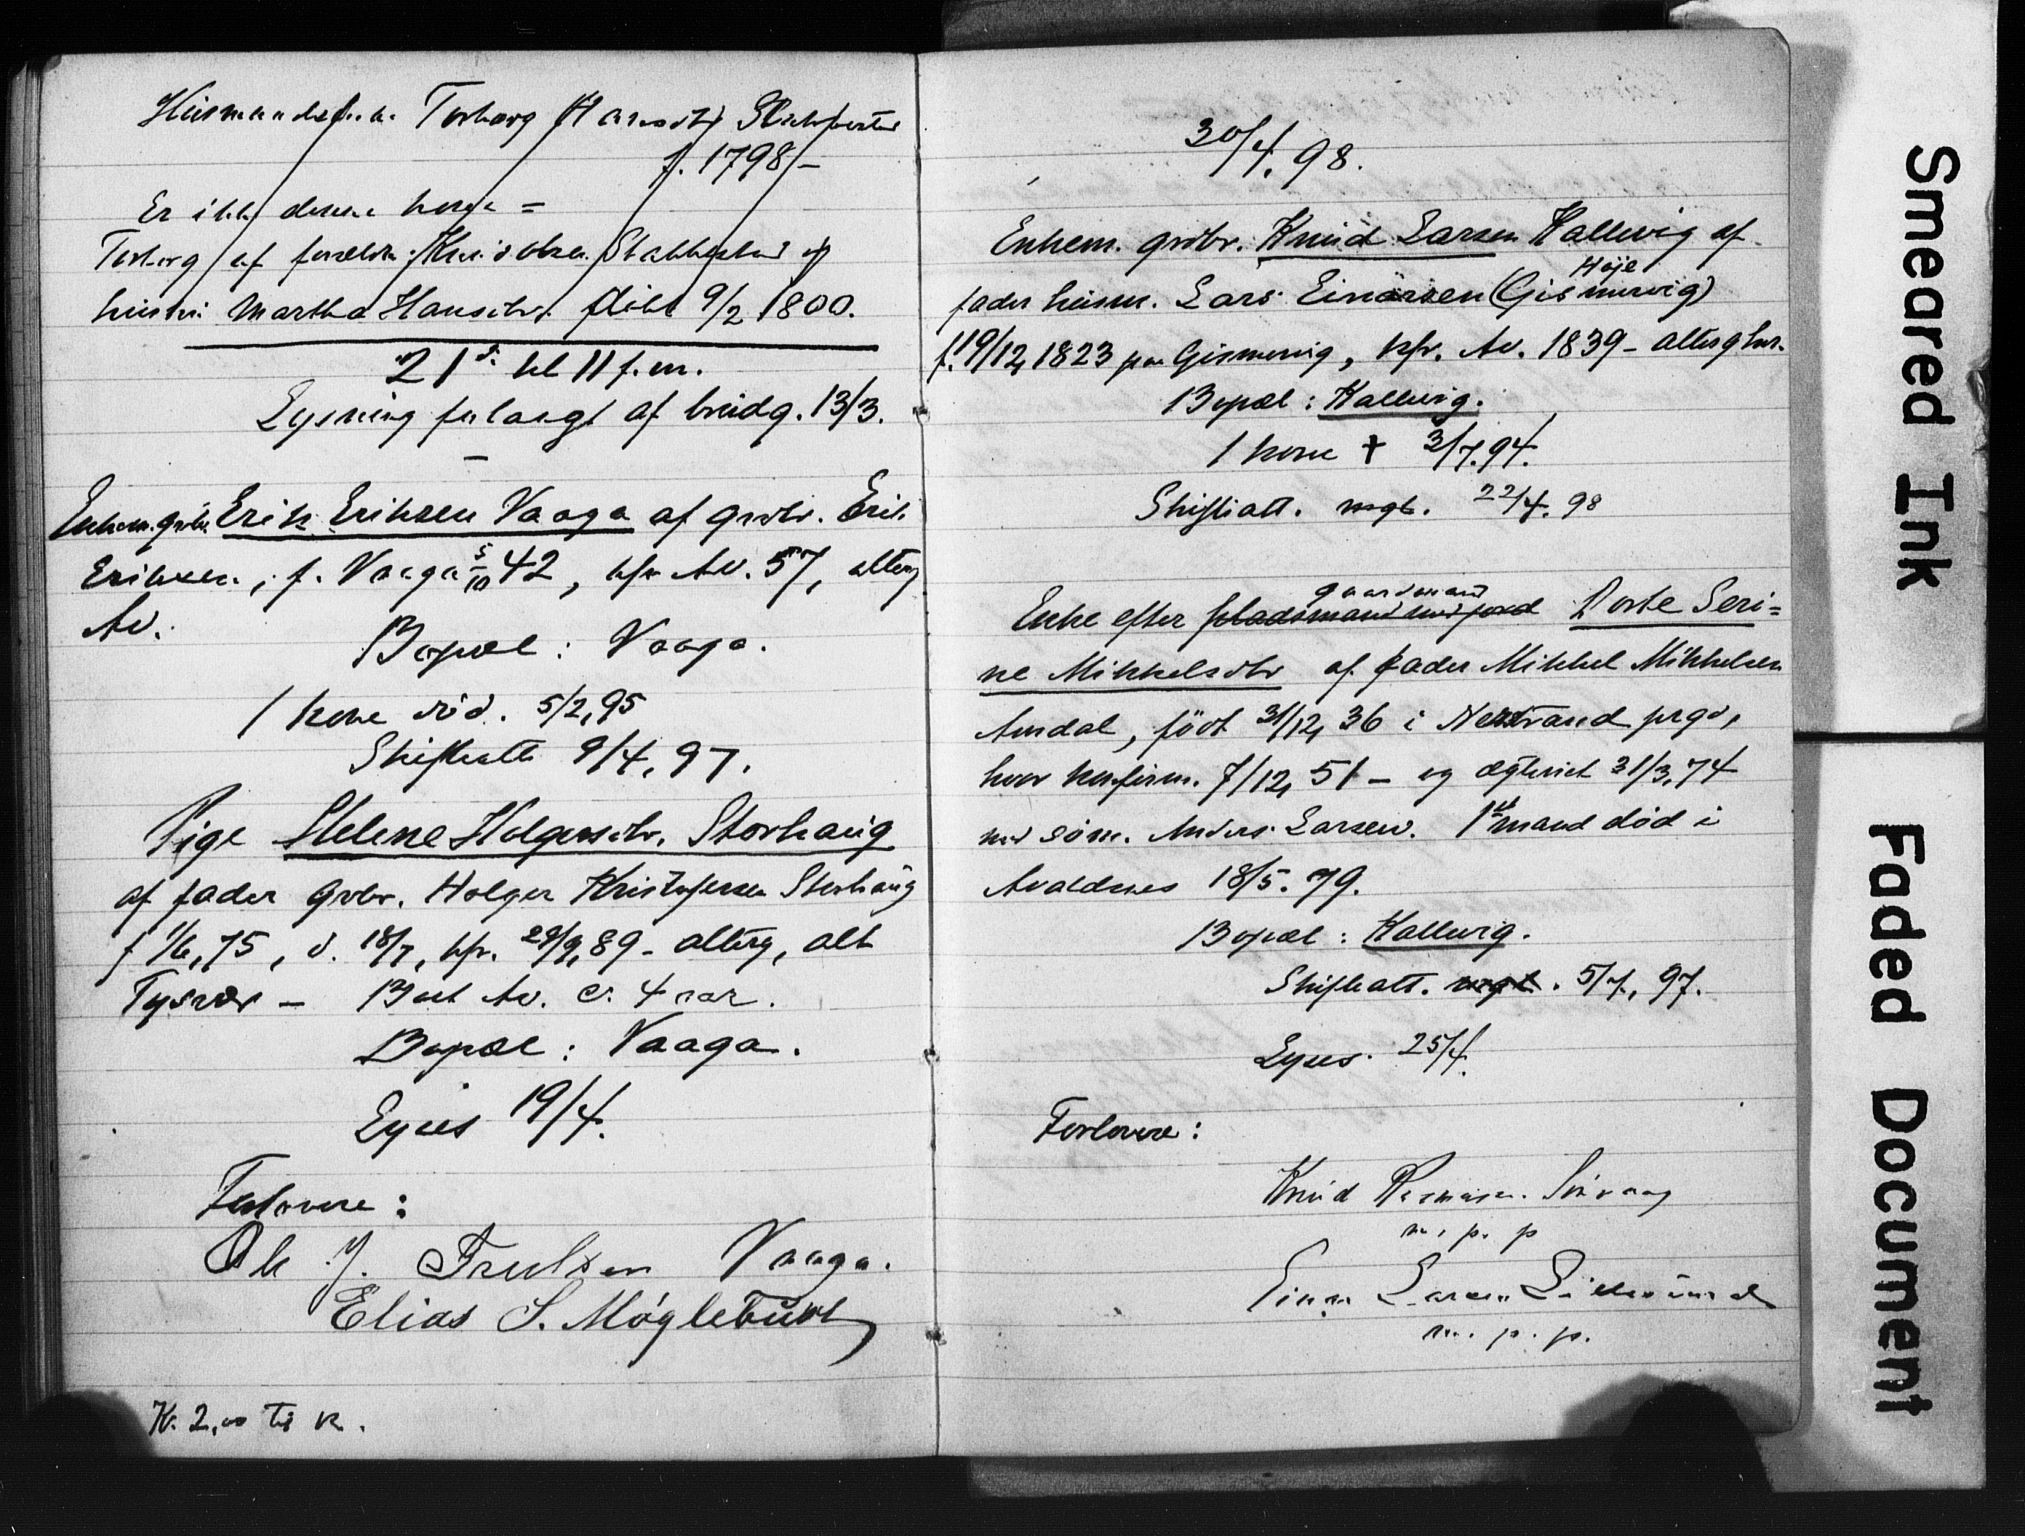 Husmandsfru Torborg Hansdtr Stakkestad
f. 1798 –
Er ikke denne kone =
Torborg af forældre: Knud Olsen Stakkestad og
hustru Martha Hansdtr. døbt 9/2 1800.
21de kl 11 f.m.
Lysning forlangt af brudg. 13/3.
Enkem. grdbr. Erik Eriksen Vaaga af grdbr. Erik
Eriksen, f. Vaaga 5/10 42, kfr Av. 57, alterg
Av.
Bopæl: Vaaga.
1 kone død. 5/2, 95
Skifteatt 9/4, 97.
Pige Helene Holgersdtr. Storhaug
af fader Grdbr. Holger Kristofersen Storhaug
f 1/6, 75, d. 18/7, kfr. 29/9, 89 – alterg, alt
Tysvær – Boet Av. c. 4 aar.
Bopæl: Vaaga.
Lyses 19/4.
Forlovere:
Ole J. Vaaga.
Elias S. Møgletun
Kr. 2,00 til K.
30/4. 98.
Enkem. grdbr. Knud Larsen Kallevig af
Høje
fader husm. Lars Einarsen (Gismervig)
f. 19/12, 1823 paa Gismervig, kfr. Av. 1839 – alterg her.
Bopæl: Kallevig.
1 kone † 3/7. 94.
Skifteatt. mgl. 22/4. 98
gaardmand
Enke efter pladsmand med jord Dorte Seri=
ne Mikkelsdtr af fader Mikkel Mikkelsen
Amdal, født 31/12, 36 i Nerstrand prgd,
hvor konfirm. 7/12, 51 – og ægteviet 31/3, 74
med søm. Anders Larsen. 1ste mand død i
Avaldsnes 18/5. 79.
Bopæl: Kallevig.
Skifteatt. mgl. 5/7, 97.
Lyses. 25/4.
Forlovere:
Knud Rasmusen
m. p. p
Einar Larsen
m. p. p.
Smeared Ink
Faded Document